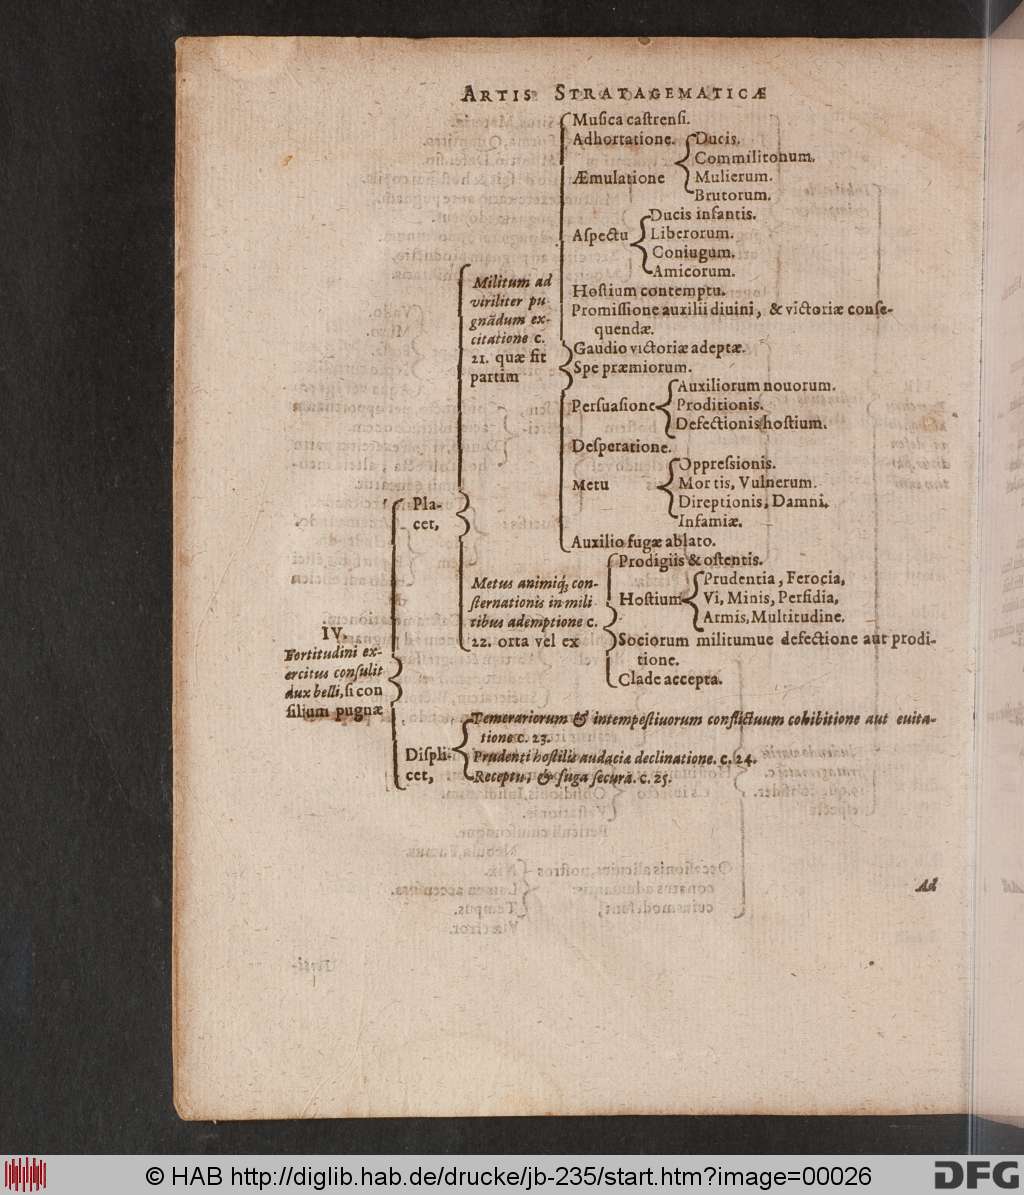 ARTIS STRATAGEMATICÆ
Muſica caſtrenſi.
Adhortatione.
Ducis.
Commilitonum.
Æmulatione
Mulierum.
Brutorum.
Aſpectu
Ducis infantis.
Liberorum.
Coniugum.
Amicorum.
Militum ad
viriliter pu-
gnãdum ex-
citatione c.
21. quæ fit
partim
Hoſtium contemptu.
Promiſſione auxilii diuini, & victoriæ conſe-
quendæ.
Gaudio victoriæ adeptæ.
Spe præmiorum.
Perſuaſione
Auxiliorum nouorum.
Proditionis.
Defectionis hoſtium.
Deſperatione.
Metu
Oppreſsionis.
Mortis, Vulnerum.
Direptionis, Damni,
Infamiæ.
Auxilio fugæ ablato.
Pla-
cet,
Metus animiq́; con-
ſternationis in mili
tibus ademptione c.
22. orta vel ex
Prodigiis & oſtentis.
Hoſtium
Prudentia, Ferocia,
Vi, Minis, Perfidia,
Armis, Multitudine.
Sociorum militumue defectione aut prodi-
tione.
Clade accepta.
IV.
Fortitudini ex-
ercitus conſulit
dux belli, ſi con
ſilium pugnæ
Diſpli-
cet,
Temerariorum & intempeſtiuorum conflictuum cohibitione aut euita-
tione c. 23.
Prudenti hoſtilis audacia declinatione. c. 24.
Receptu, & fuga ſecurâ. c. 25.
Ad
© HAB http://diglib.hab.de/drucke/jb-235/start.htm?image=00026
DFG